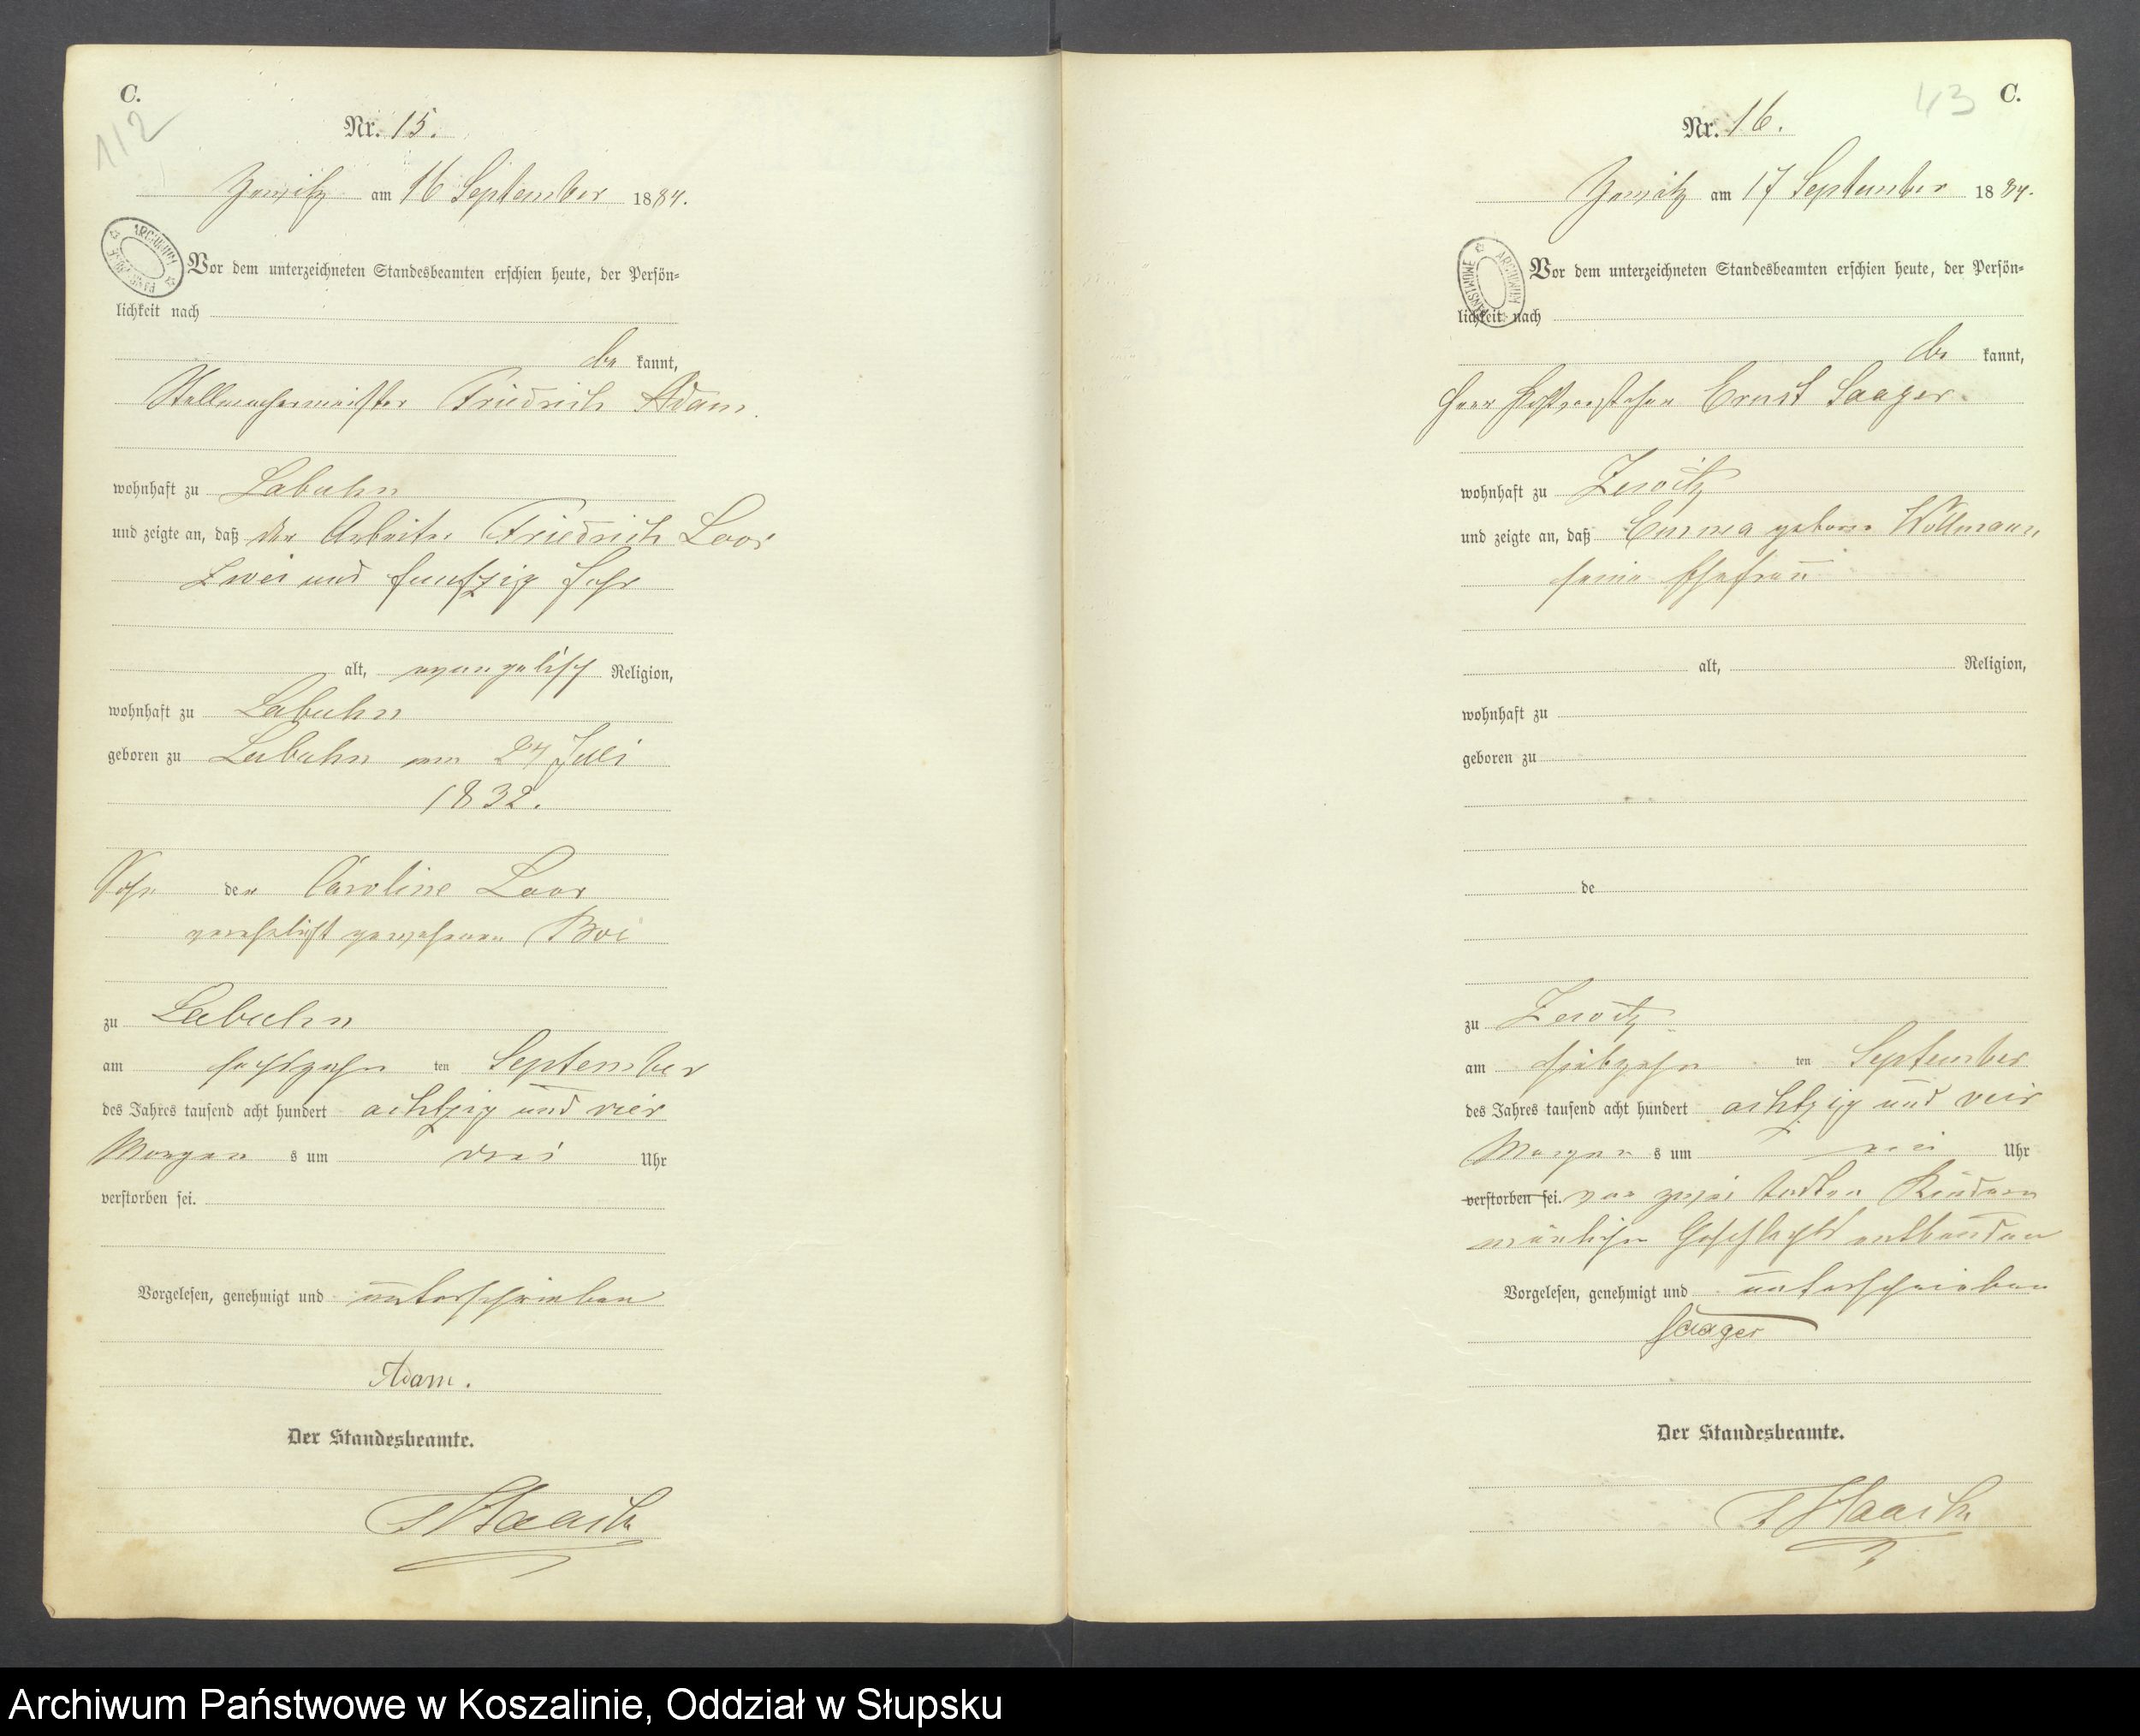 C.
112
Nr. 15.
Zewitz am 16 September 1884.
ARCHIWUM PAŃSTWOWE
Vor dem unterzeichneten Standesbeamten erschien heute, der Persön-
lichkeit nach
be kannt,
Stellmachermeister Friedrich Adam.
wohnhaft zu Labuhn
und zeigte an, daß der Arbeiter Friedrich Loor
Zwei und funfzig Jahr
alt, evangelisch Religion,
wohnhaft zu Labuhn
geboren zu Labuhn am 24 Juli
1832.
Sohn der Caroline Loor
verehelicht gewesenen
zu Labuhn
am sechszehn ten September
des Jahres tausend acht hundert achtzig und vier
Morgen s um drei Uhr
verstorben sei.
Vorgelesen, genehmigt und unterschrieben
Adam.
Der Standesbeamte.
Haack
43 C.
Nr. 16.
Zewitz am 17 September 1884.
ARCHIWUM PAŃSTWOWE
Vor dem unterzeichneten Standesbeamten erschien heute, der Persön-
lichkeit nach
be kannt,
Herr Ernst Saager.
wohnhaft zu Zewitz
und zeigte an, daß Emma geborne Wollmann
seine Ehefrau
alt, Religion,
wohnhaft zu
geboren zu
de
zu Zewitz
am siebzehn ten September
des Jahres tausend acht hundert achtzig und vier
Morgen s um Uhr
verstorben sei. von zwei todten Kindern
mänlichen Geschlechts entbunden
Vorgelesen, genehmigt und unterschrieben
Saager
Der Standesbeamte.
Haack
Archiwum Państwowe w Koszalinie, Oddział w Słupsku